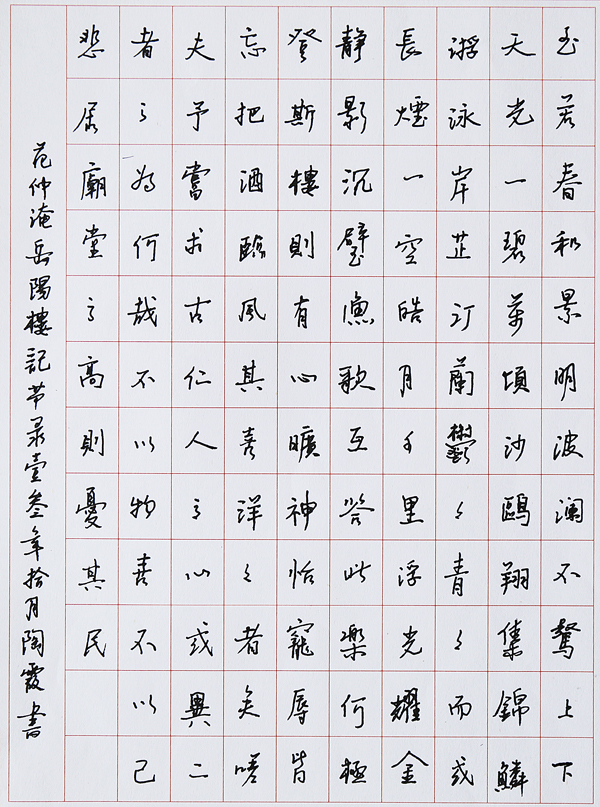 至若春和景明波澜不驚上下
天光一碧萬頃沙鷗翔集錦鱗
游泳岸芷汀蘭鬱々青々而或
長煙一空皓月千里浮光耀金
静影沉璧漁歌互答此樂何極
登斯樓則有心曠神怡寵辱皆
忘把酒臨風其喜洋々者矣嗟
夫予嘗求古仁人之心或異二
者之為何哉不以物喜不以己
悲居廟堂之高則憂其民
范仲淹岳陽樓記节录壹叁年拾月陶霞書